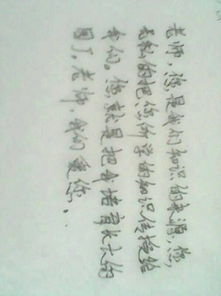 老师，您是我们知识的来源，您，
无私的把您所学的知识传授给
我们。您就是把育长大的
园丁。老师，我们爱您。